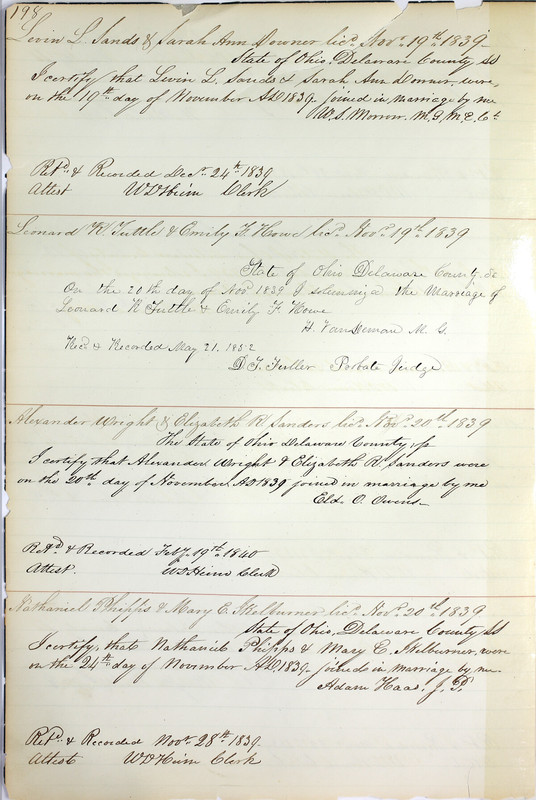 198
Levin L. Sands & Sarah Ann Downer lic'd Nov. 19th 1839
State of Ohio Delaware County SS
I certify that Levin L. Sands & Sarah Ann Downer were
on the 19th day of November AD 1839 joined in marriage by me
W. S. Morrow. M. G. M. E. Ch
Ret'd & Recorded Dec'r 24th 1839
Attest W D Heim Clerk
Leonard K. Tuttle & Emily F. Howe lic'd Nov. 19th 1839
State of Ohio Delaware County Sc
On the 20th day of Nov 1839 I solemnized the Marriage of
Leonard K Tuttle & Emily F. Howe
H. Van Deman M. G.
Rec'd & Recorded May 21. 1852
D. T. Fuller Porbate Judge
Alexander Wright & Elizabeth R. Sanders lic'd Nov. 20th 1839
The State of Ohio Delaware County, ss
I certify that Alexander Wright & Elizabeth R. Sanders were
on the 20th day of November AD 1839 joined in marriage by me
Eld. O. Owens
Ret'd & Recorded Feb'y 19th 1840
Attest. W D Heim Clerk
Nathaniel Phipps & Mary E. Skelburner lic'd Nov. 20th 1839
State of Ohio, Delaware County SS
I certify, that Nathaniel Phipps & Mary E. Skelburner were
on the 24th day of November AD. 1839 joined in marriage by me
Adam Haas, J. P.
Ret'd & Recorded Nov. 28th 1839.
Attest W D Heim Clerk